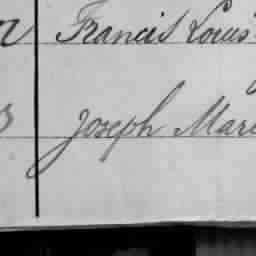 Francis Louis
Joseph Mari